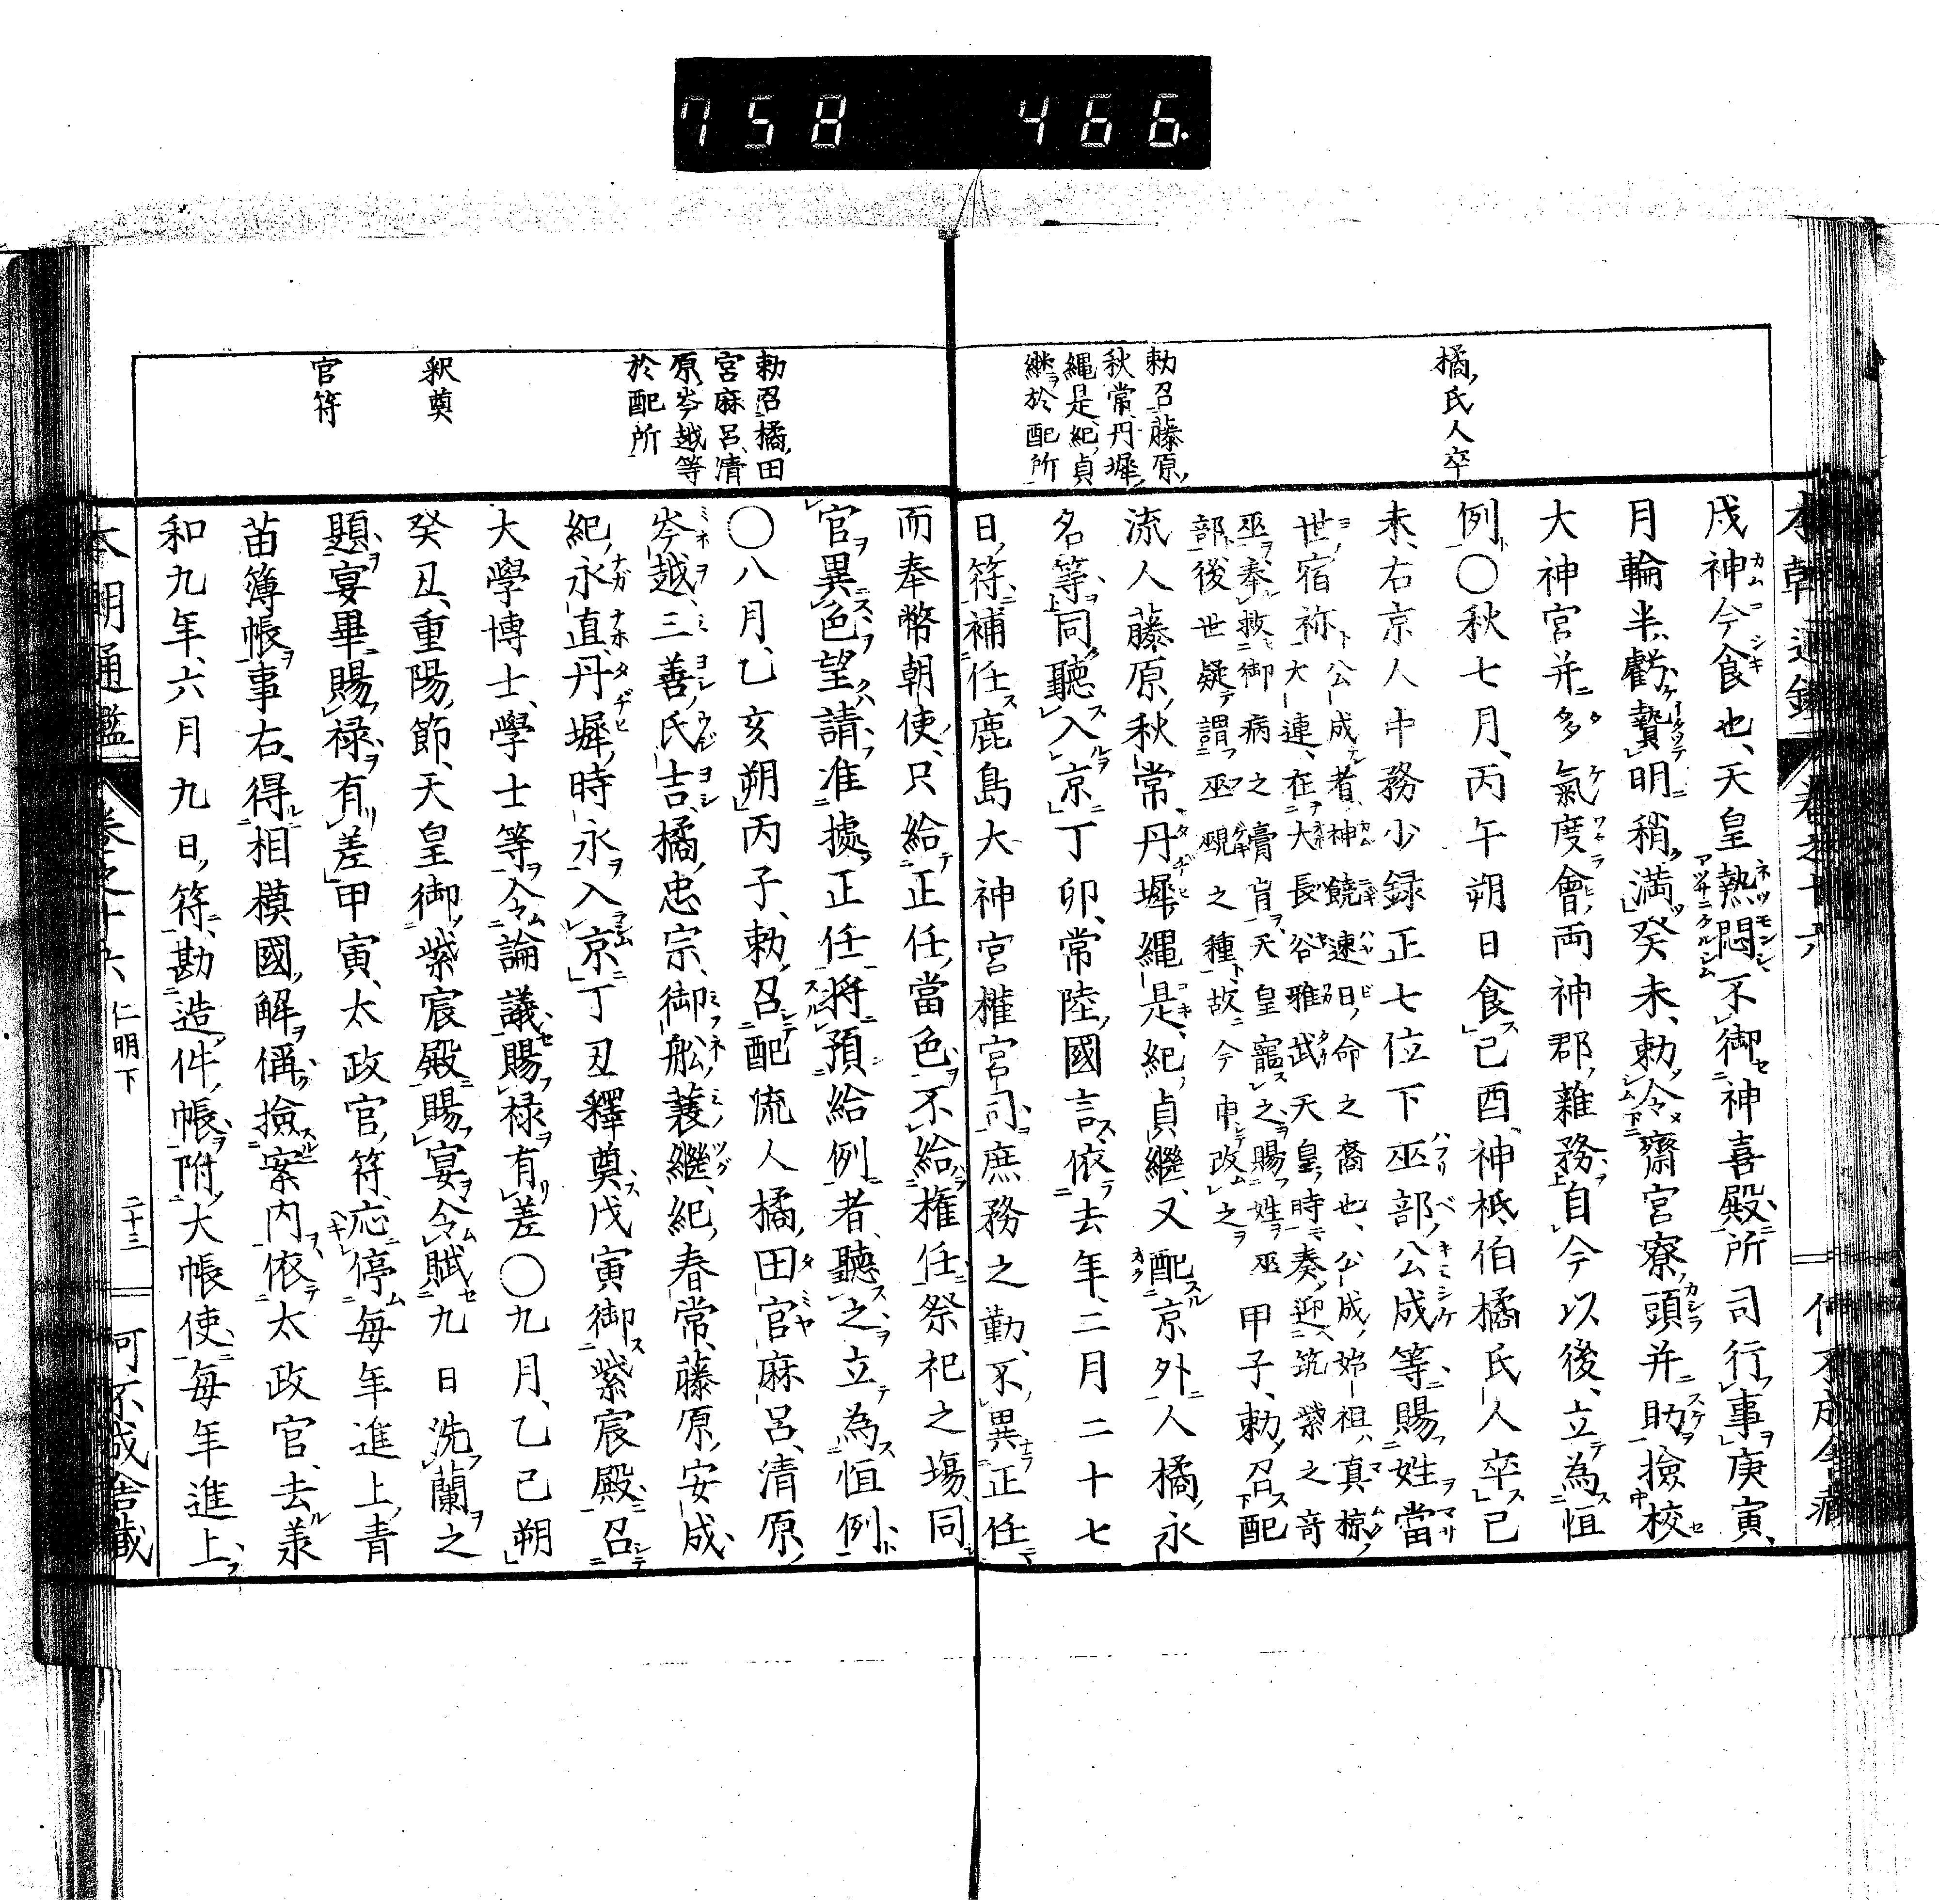 758 466.
橘氏人卒
勅召藤原
秋常丹墀
縄是紀貞
継於配所
戌神今食也天皇熱悶不御神喜殿所司行事庚寅
月輪半虧贄明稍満癸未勅令齋宮寮頭并助撿校
大神宮并多氣度會両神郡雜務自今以後立為恒
例〇秋七月丙午朔日食己酉神祗伯橘氏人卒己
未右京人中務少録正七位下巫部公成等賜姓當
世宿祢公成者神饒速日命之裔也公成始祖真椋
大連在大長谷雅武天皇時奏迎筑紫之竒
巫奉救御病之膏肓天皇寵之賜姓巫
部後世疑謂巫覡之種故今申改之
甲子勅召配
流人藤原秋常丹墀縄是紀貞繼又配京外人橘永
名等同聽入京丁卯常陸國言依去年三月二十七
日符補任鹿島大神宮權宮司庶務之勤不異正任
而奉幣朝使只給正任當色不給権任祭祀之塲同
官異色望請准據正任将預給例者聽之立為恒例
〇八月乙亥朔丙子勅召配流人橘田宮麻呂清原
岑越三善氏吉橘忠宗御舩蓑継紀春常藤原安成
紀永直丹墀時永入京丁丑釋奠戊寅御紫宸殿召
大學博士學士等令論議賜禄有差〇九月乙巳朔
癸丑重陽節天皇御紫宸殿賜宴令賦九日洗蘭之
題宴畢賜禄有差甲寅太政官符応停毎年進上青
苗簿帳事右得相模國解偁撿案内依太政官去羕
和九年六月九日符勘造件帳附大帳使毎年進上
勅召橘田
宮麻呂清
原岑越等
於配所
釈奠
官符
本朝通鑑 卷之十六 仁明下 二十三 何不成舎蔵